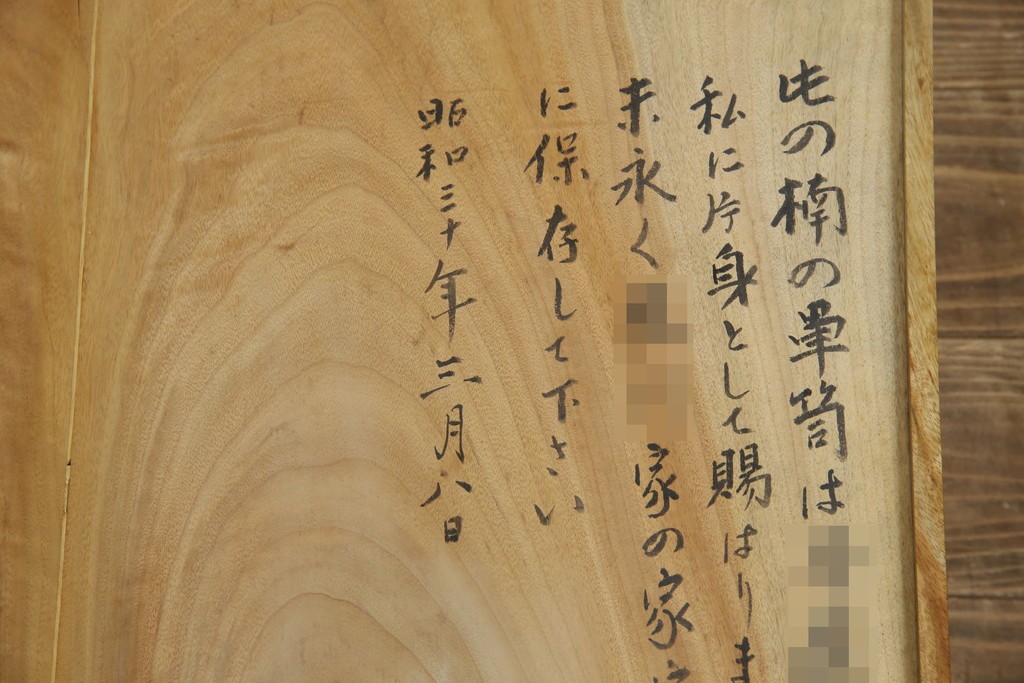 此の楠の箪笥は
私に片身として賜はりま
来永く
家の家
に保存して下さい
昭和三十年三月八日